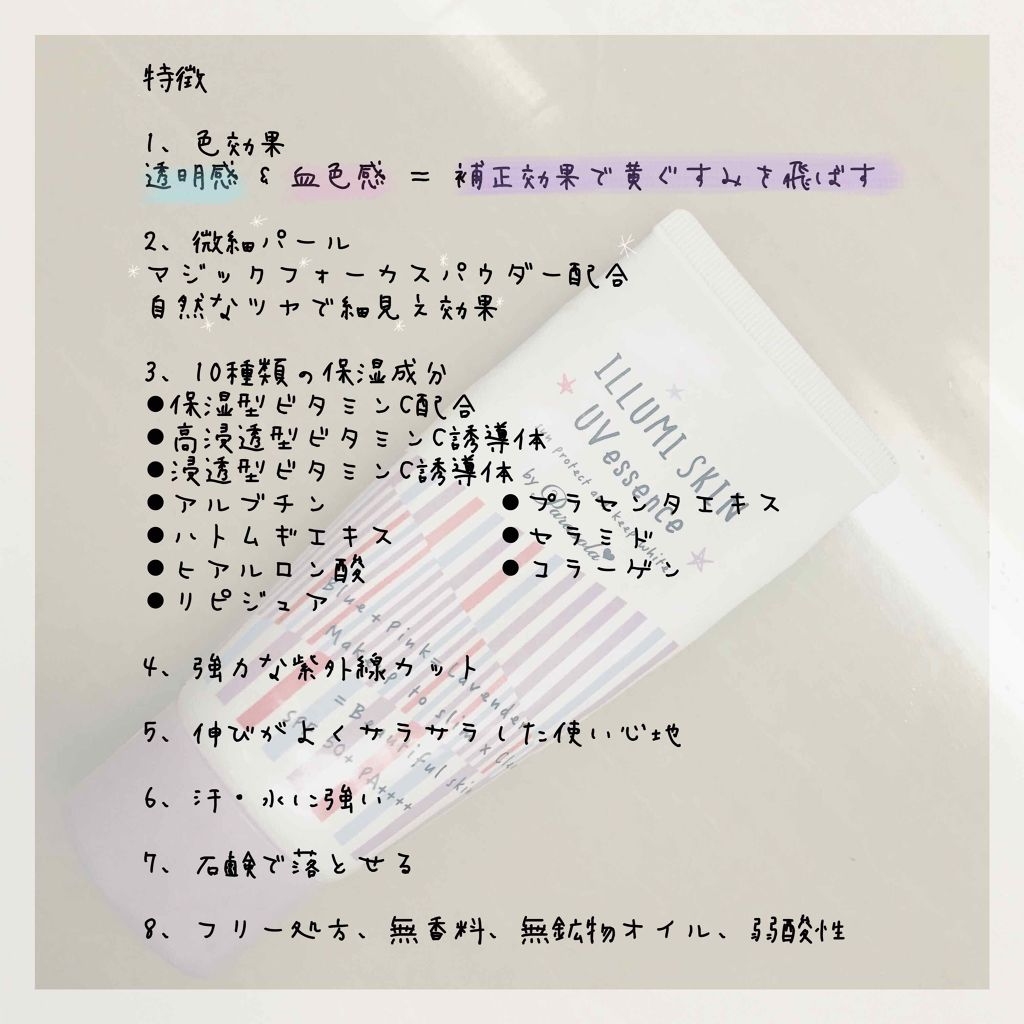 特徴
1、色効果
透明感 & 血色感 = 補正効果で黄ぐすみを飛ばす
2、微細パール
マジックフォーカスパウダー配合
自然なツヤで細見え効果
3、10種類の保湿成分
●保湿型ビタミンC配合
●高浸透型ビタミンC誘導体
●浸透型ビタミンC誘導体
●アルブチン ●プラセンタエキス
●ハトムギエキス ●セラミド
●ヒアルロン酸 ●コラーゲン
●リピジュア
4、強力な紫外線カット
5、伸びがよくサラサラした使い心地
6、汗・水に強い
7、石鹸で落とせる
8、フリー処方、無香料、無鉱物オイル、弱酸性
ILLUMI SKIN
UV essence
sun protect and keep white
by Parado la
Blue + Pink = Lavender
Make up to slim x
= Beautiful skin
SPF 50+ PA++++